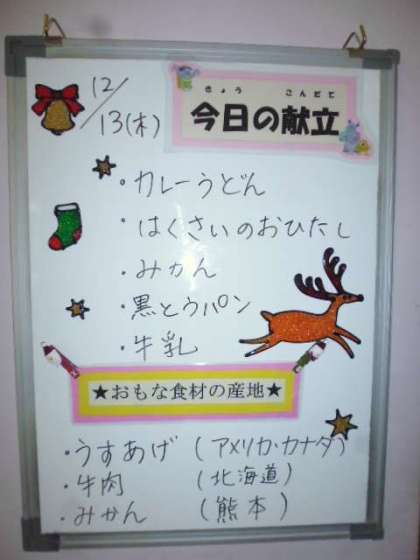 12/13(木)
きょう こんだて
今日の献立
・カレーうどん
・はくさいのおひたし
・みかん
・黒とうパン
・牛乳
★おもな食材の産地★
・うすあげ (アメリカ・カナダ)
・牛肉 (北海道)
・みかん (熊本)